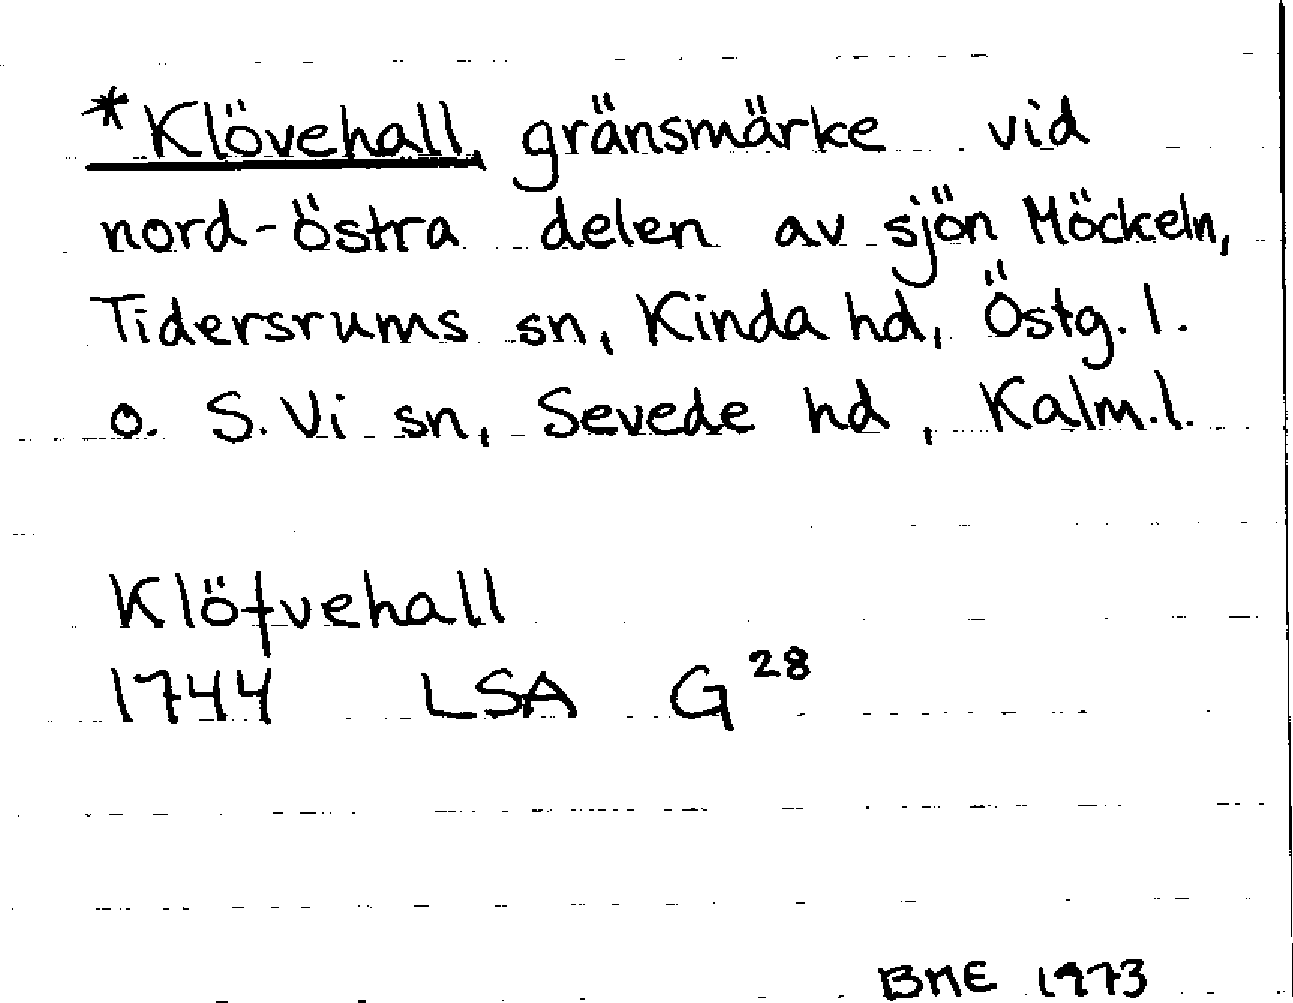 *Klövehall, gränsmärke vid
nord-östra delen av sjön Möckeln,
Tidersrums sn, Kinda hd, Östg. l.
o. S. Vi sn, Sevede hd, Kalm. l.
Klöfvehall
1744 LSA G 28
BME 1973